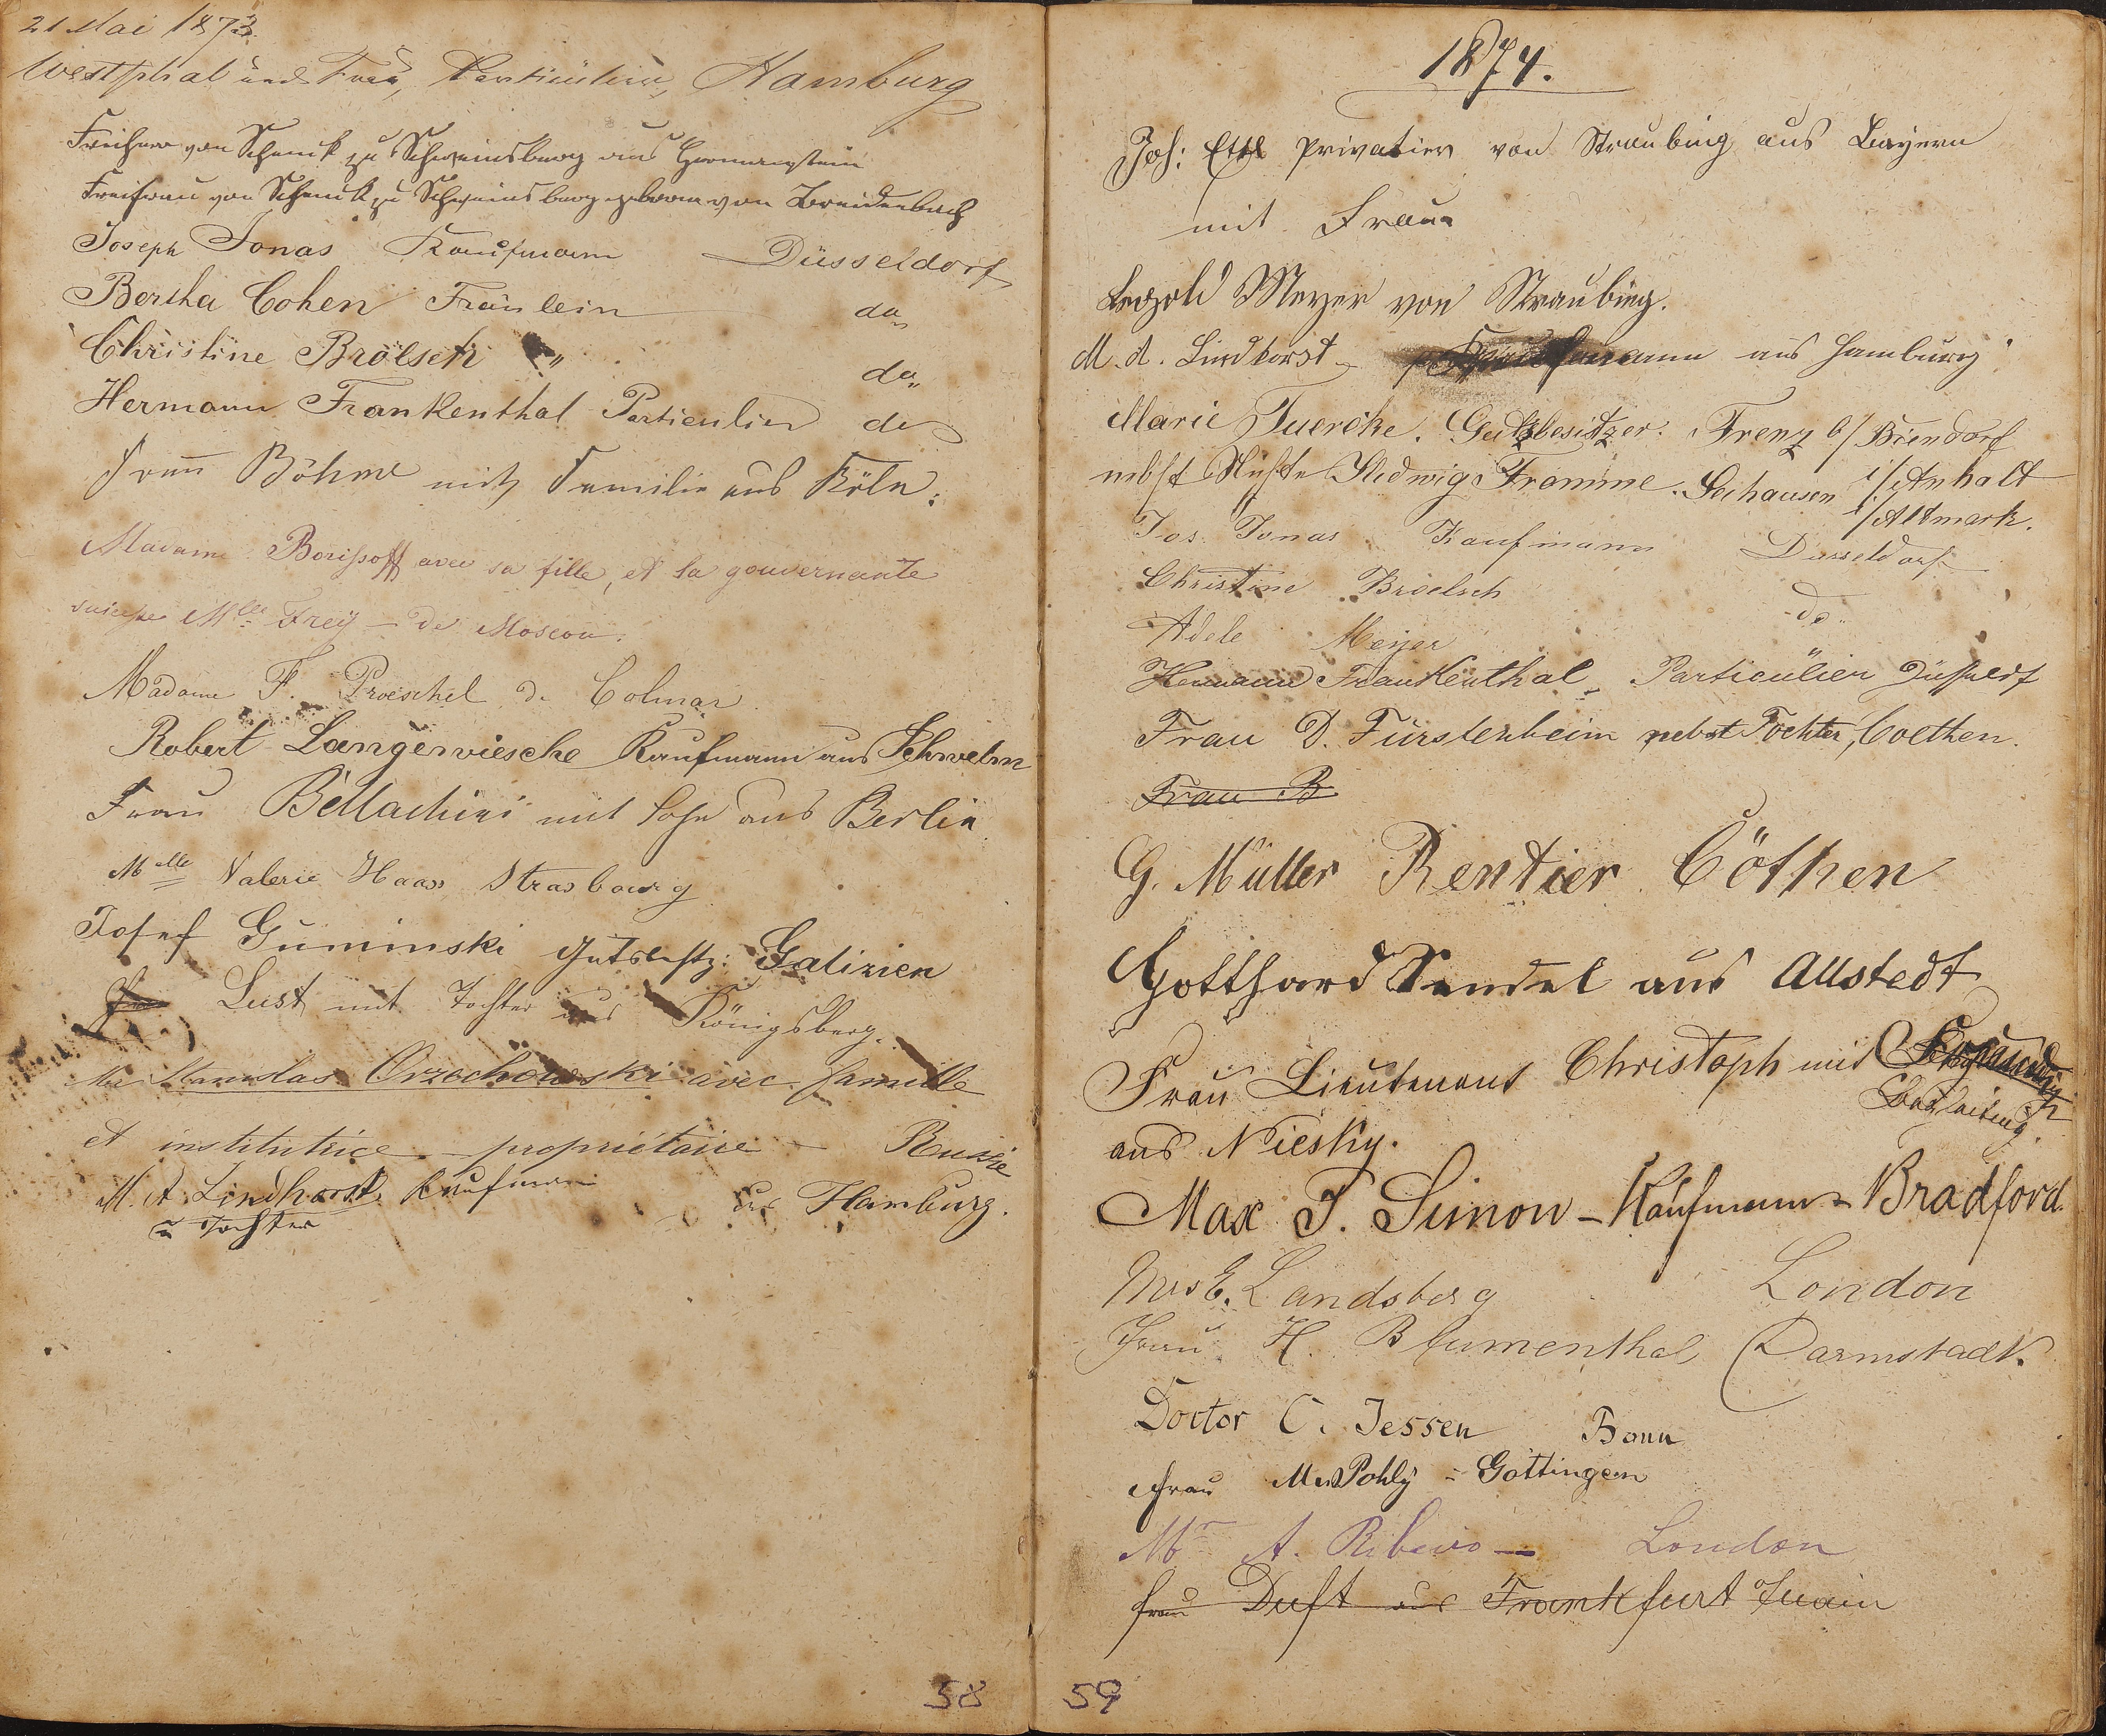 21 Mai 1873.
Westphal und Frau, Particülier, Hamburg
Freiherr von Schenck zu Schweinsberg aus Hermannstein
Freifrau von Schenck zu Schweinsberg geborne von Breidenbach
Joseph Jonas Kaufmann Düsseldorf
Bertha Cohen Fräulein do
Christine Brölsch " do
Hermann Frankenthal Particulier do
Frau Böhme mit Familie aus Köln.
Madame Borissoff avec sa fille, et la gouvernante
suisse Mlle Frey – de Moscou.
Madame F. Proeschel de Colmar
Robert Langewiesche Kaufmann aus Schwelm
Frau Bellachini mit Sohn aus Berlin
Melle Valerie Haass Strasbourg
Josef Guminski Gutsbstz: Galizien
Lust mit Tochter aus Königsberg.
Stanislas Orzechowski avec famille
et institutrice – propriétaire – Russie
M. A. Lindhorst Kaufmann aus Hamburg.
u Tochter
58
1874.
Joh: Ettl Privatier von Straubing aus Bayern
mit Frau
Leopold Meyer von Straubing.
M. A. Lindhorst aus Hamburg
Marie Fuercke. Gutsbesitzer. Frenz b/ Biendorf
nebst Nichte Hedwig Framme. Seehausen i/Anhalt
i/Altmark.
Jos. Jonas Kaufmann Düsseldorf
Christine Broelsch do
Adele Meyer
Hermann Frankenthal, Particülier Düsseldf
Frau D. Fürstenheim nebst Tochter, Coethen.
Frau B.
G. Müller Rentier Cöthen
Gotthard Sendel aus Allstedt
Frau Lieutenant Christoph mit
Begleitung.
aus Niesky.
Max J. Simon – Kaufmann – Bradford.
Mrs E. Landsberg London
Frau H. Blumenthal Darmstadt.
Doctor C. Jessen Bonn
Frau M. Pohly – Göttingen
Mr A. Ribeiro — London
Frau Duft aus Frankfurt Main
59